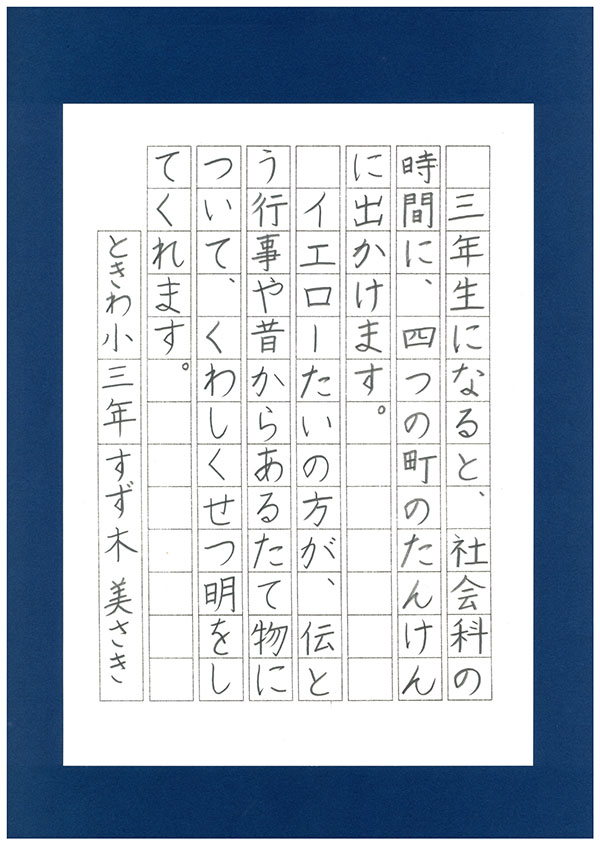 三年生になると、社会科の
時間に、四つの町のたんけん
に出かけます。
　イエローたいの方が、伝と
う行事や昔からあるたて物に
ついて、くわしくせつ明をし
てくれます。
ときわ小三年すず木美さき